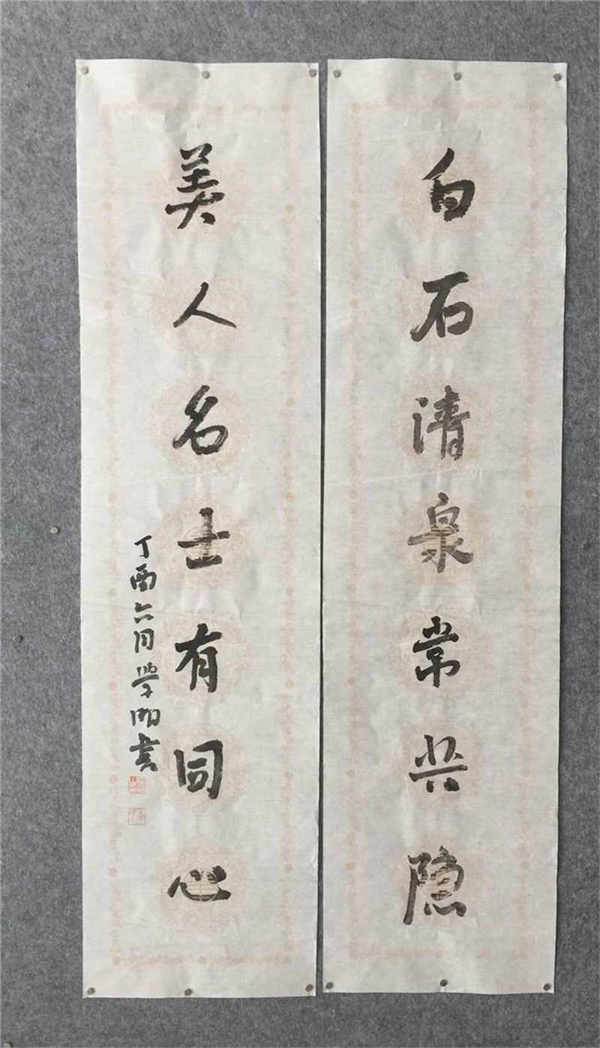 白石清泉常共隐
美人名士有同心
丁酉六月学明书